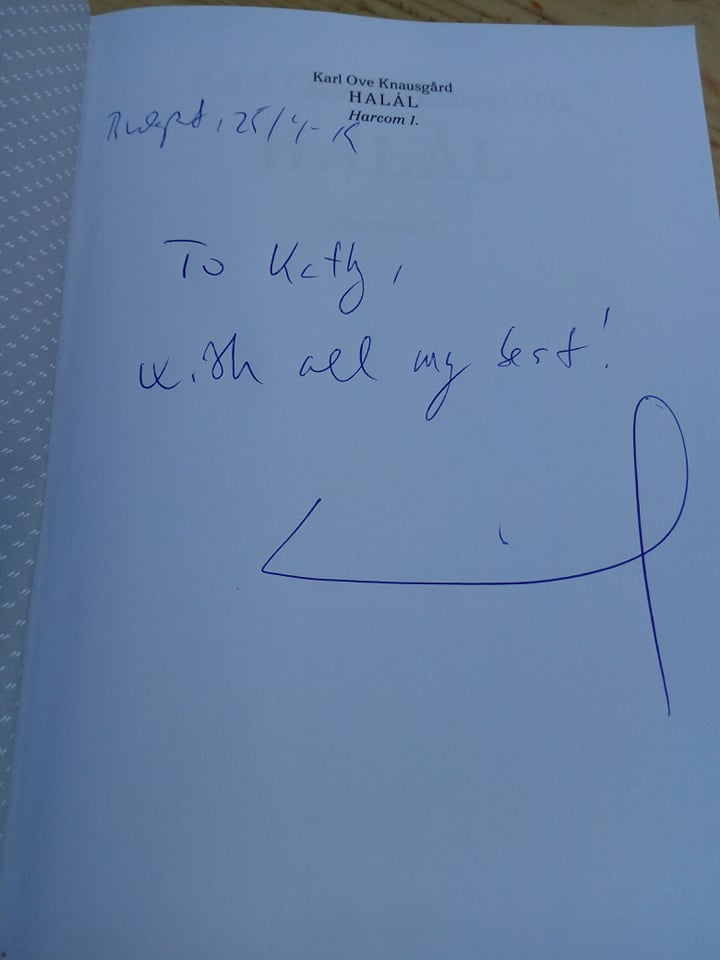 Karl Ove Knausgård
HALÁL
Harcom 1.
Budapest, 25/4-15
To Kathy,
with all my best!